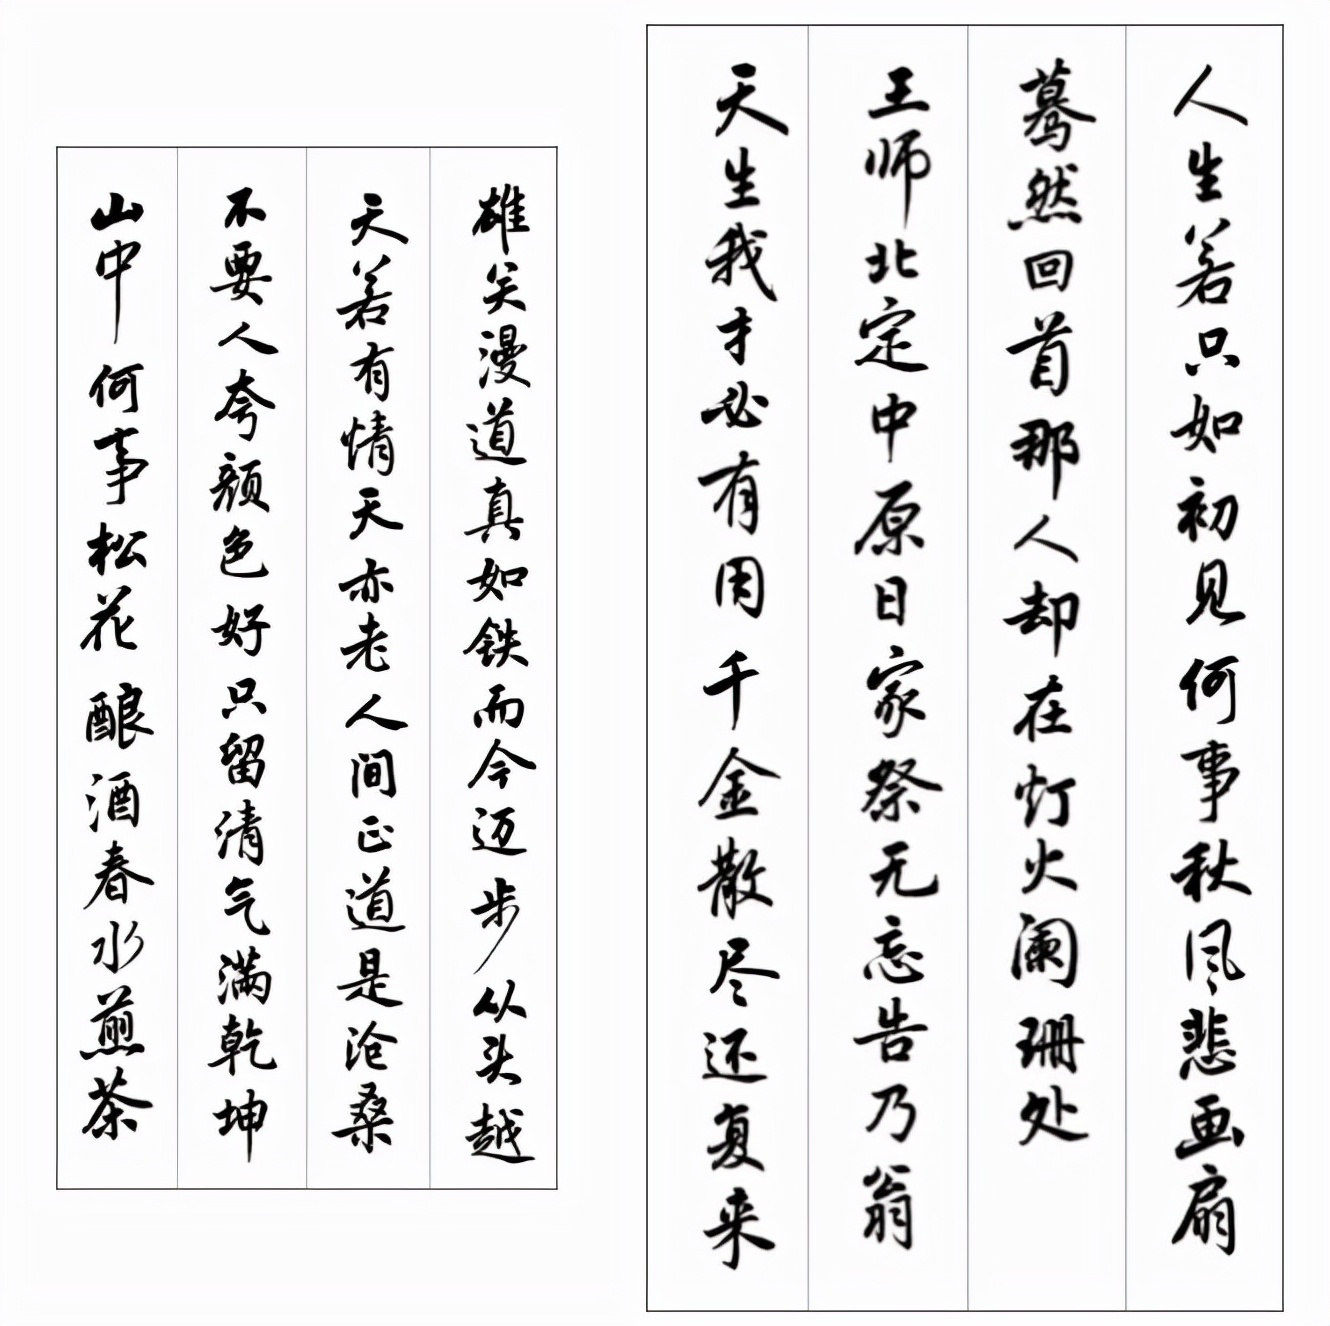 人生若只如初见何事秋风悲画扇
蓦然回首那人却在灯火阑珊处
王师北定中原日家祭无忘告乃翁
天生我才必有用千金散尽还复来
雄关漫道真如铁而今迈步从头越
天若有情天亦老人间正道是沧桑
不要人夸颜色好只留清气满乾坤
山中何事松花酿酒春水煎茶